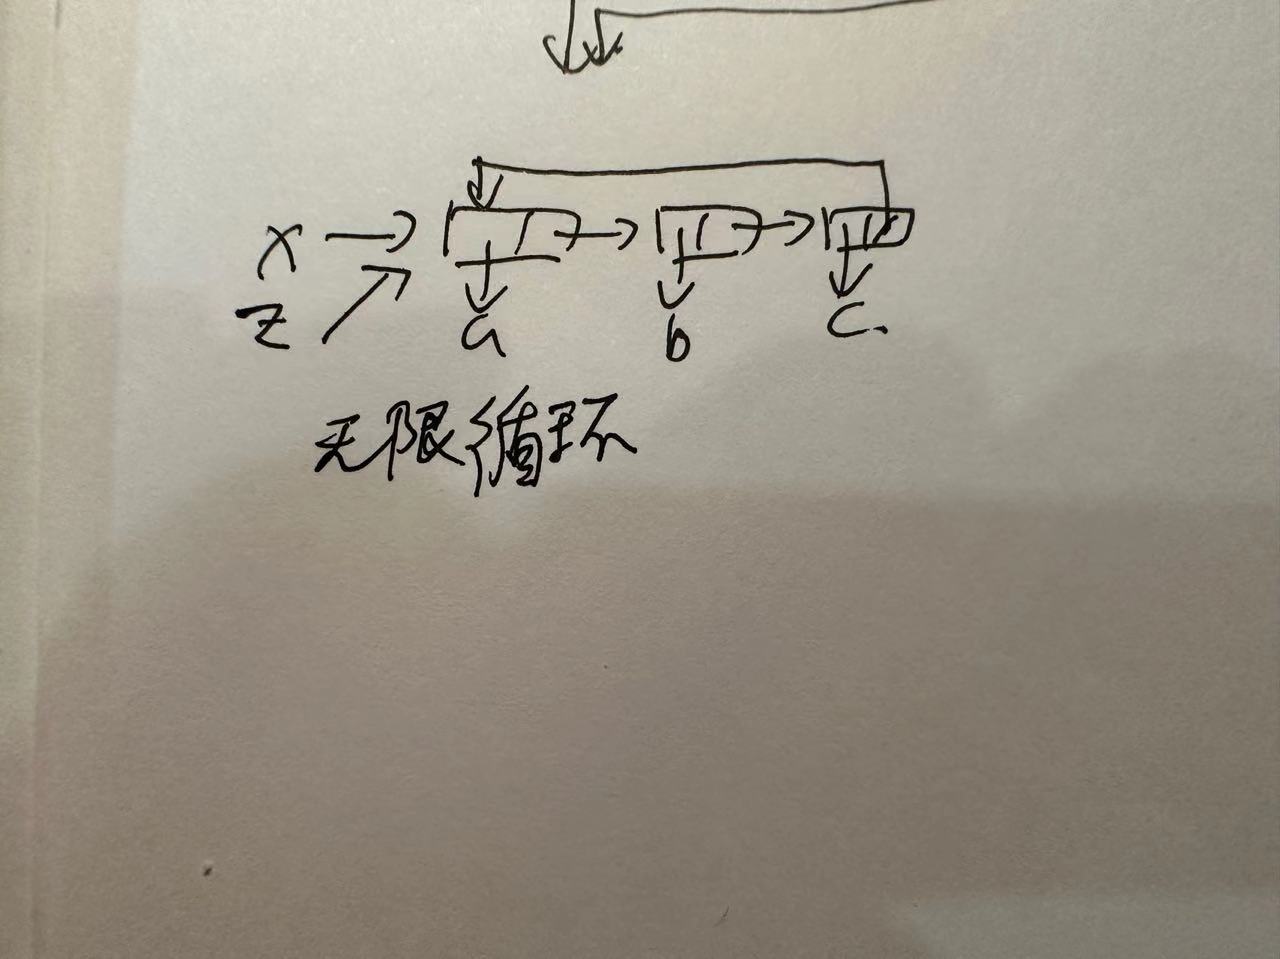 x
z
a b c.
无限循环